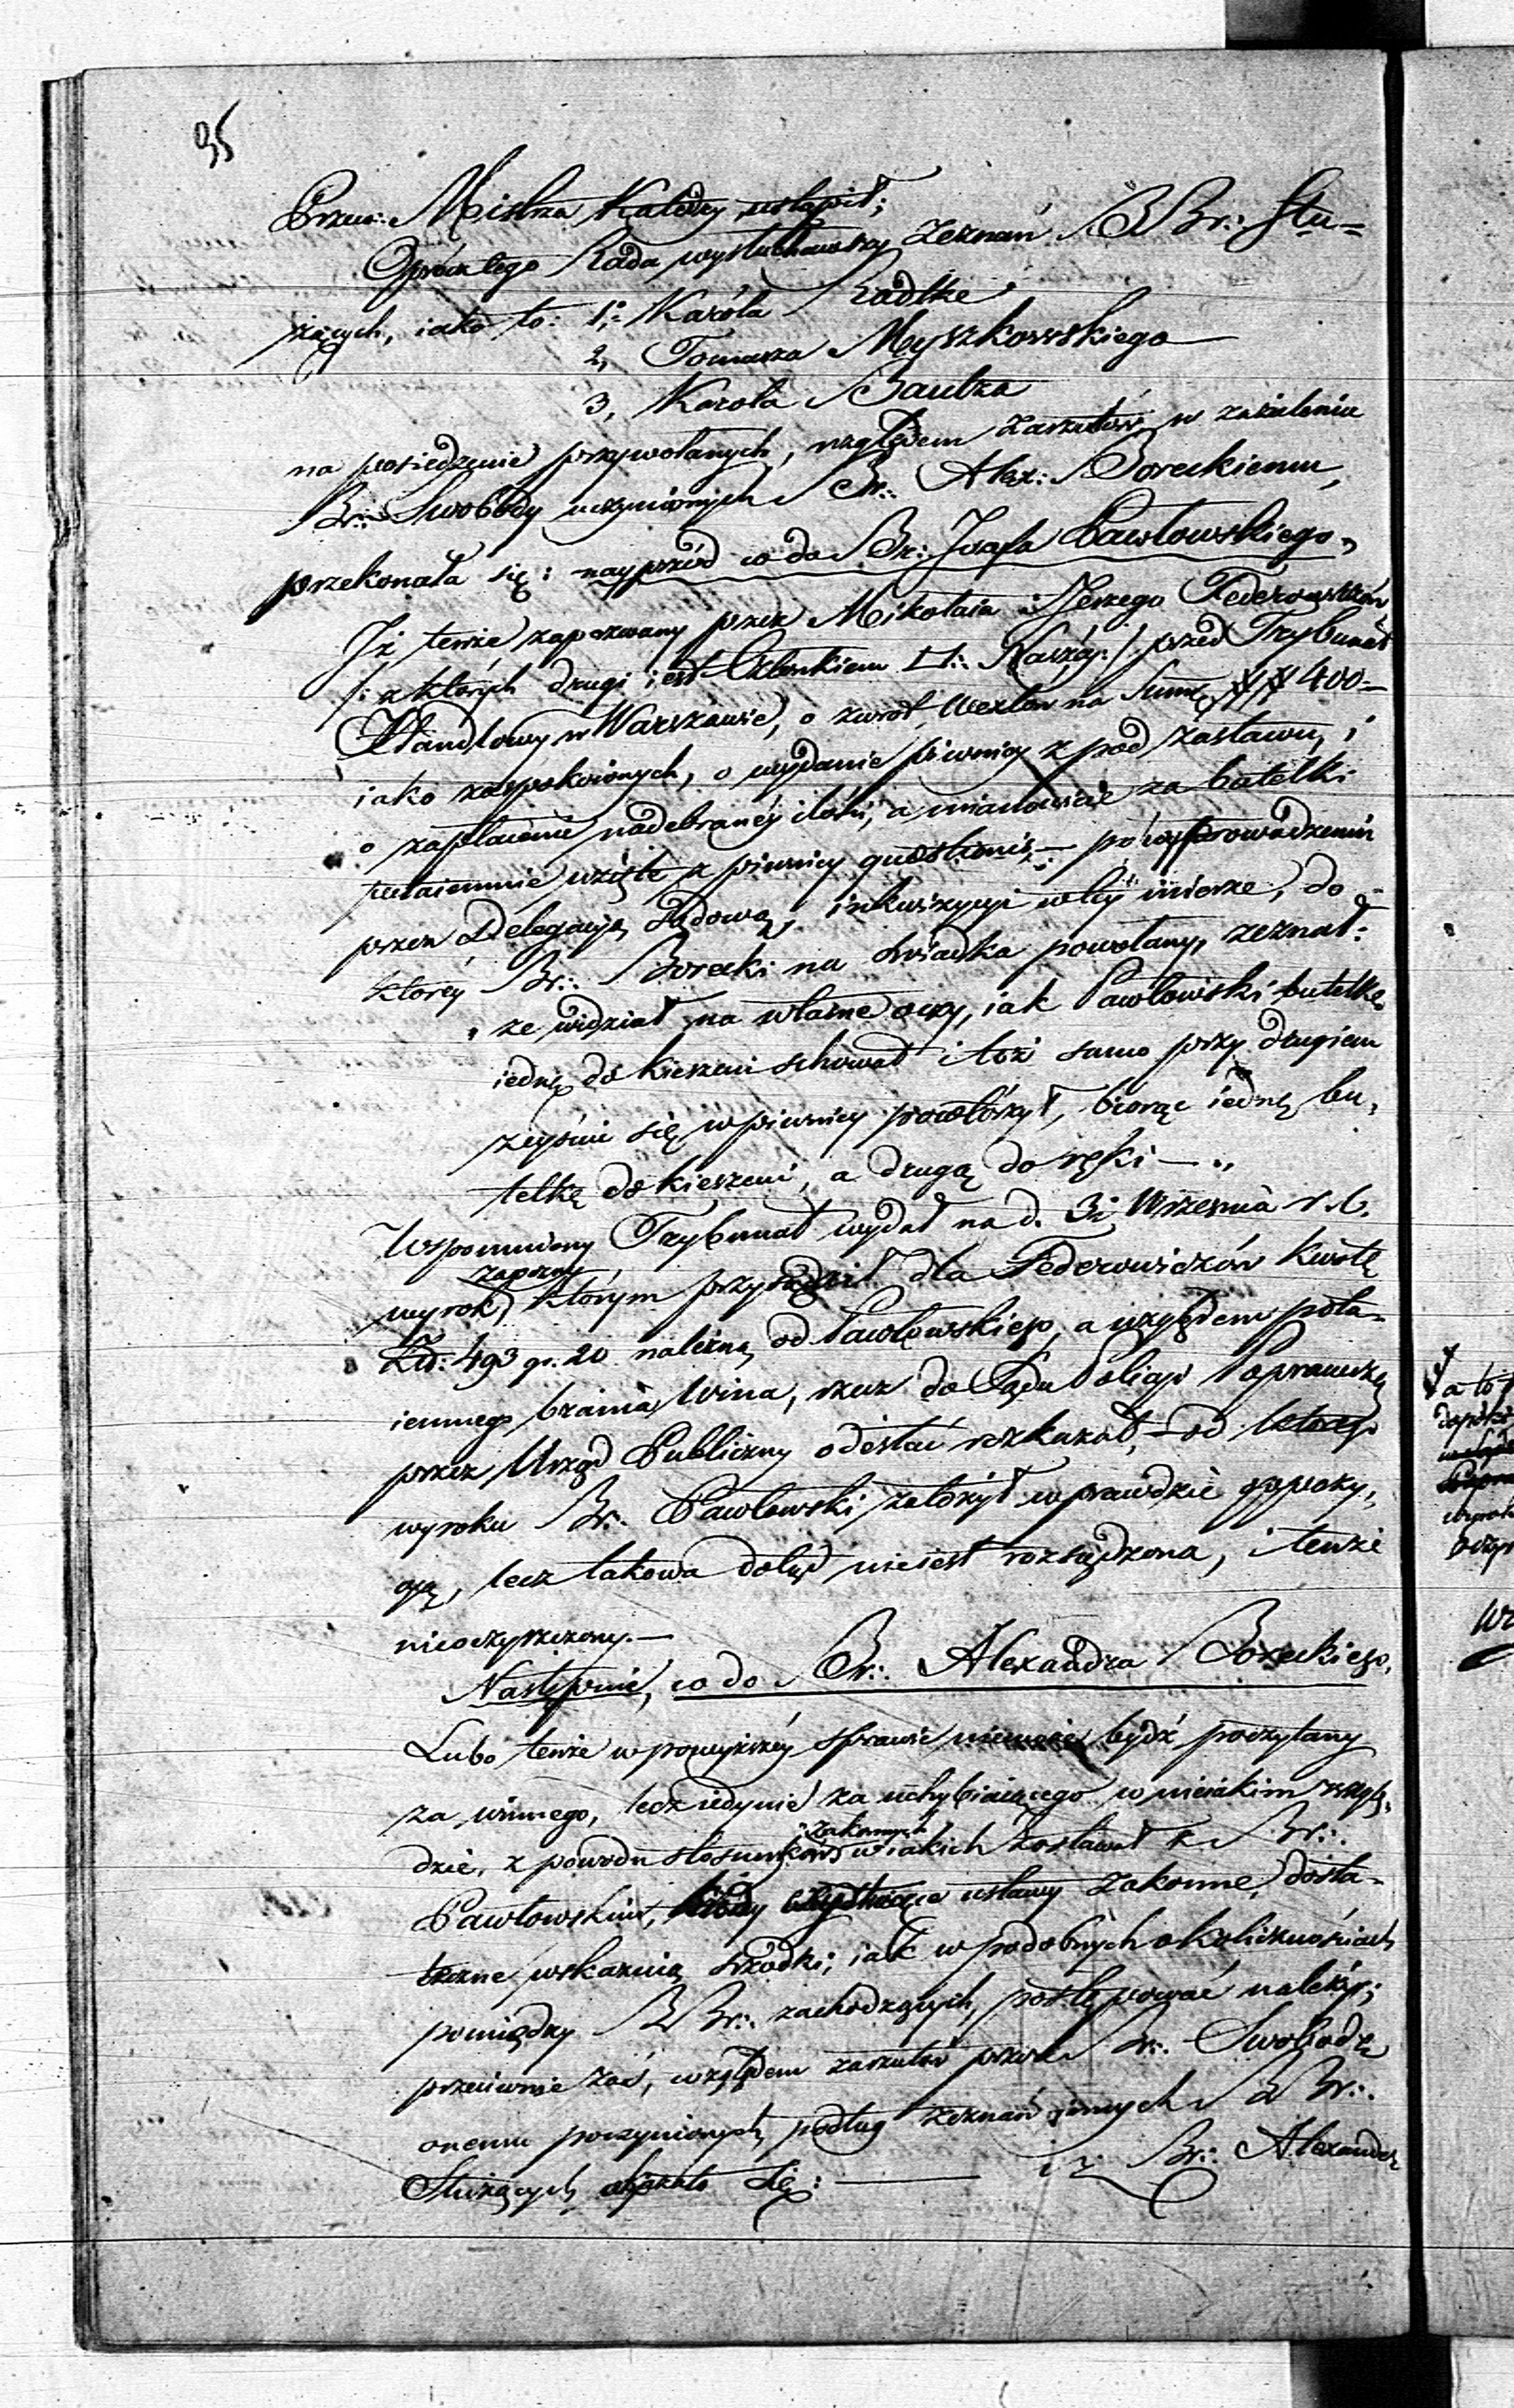 95
Przew: Mistrza Katedry ustąpił;
Oprócz tego Rada wysłuchawszy zeznań BBr:. Słu=
żących, iako to: 1, Karóla Radtke
2, Tomasza Myszkowskiego
3, Karola Bautza
na posiedzenie przywołanych, względem zarzutów w zażaleniu
Br:. Swobody uczynionych Br:. Alex: Boreckiemu,
przekonała się: nayprzód co do Br: Józefa Pawłowskiego,
Iż tenże zapozwany przez Mikołaia i Jerzego Federowiczów
/: z których drugi iest Członkiem □:. :/ przed Trybunał
Handlowy w Warszawie, o zwrot Wexlów na Summę ## 400 –
iako zaspokoionych, o wydanie piwnicy z pod zastawu, i
o zapłacenie nadebranéy ilości, a mianowicie za butelki
potaiemnie wzięte z piwnicy questionis, – po wyprowadzeniu
przez Delegacyą Sądową, inkwizycyi w téy mierze, do
któréy Br:. Borecki na świadka powołany, zeznał:
„ że widział na własne oczy, iak Pawłowski butelkę
iednę do kieszeni schował i toż samo przy drugiem
zeyściu się w piwnicy powtórzył, biorąc iednę bu„
telkę do kieszeni, a drugą do ręki – „
Wspomniony Trybunał wydał na d. 3i Września r. b.
zaoczny
wyrok, którym przysądził dla Federowiczów kwotę
Złt: 493 gr. 20 należną od Pawłowskiego, a względem pota-
iemnego brania Wina, rzecz do Sądu Policyi Poprawczéy
przez Urząd Publiczny odesłać rozkazał, – od którego
wyroku Br:. Pawłowski założył wprawdzie oppozy„
cyą, lecz takowa dotąd nieiest rozsądzona, i tenże
nieoczyszczony. –
Następnie, co do Br:. Alexandra Boreckiego,
Lubo tenże w powyższéy sprawie niemoże bydź poczytany
za winnego, lecz iedynie za uchybiaiącego w nieiakim wzglę„
zakonnych
dzie, z powodu stosunków w iakich zostawał z Br:.
Pawłowskim, ustawy Zakonne, dosta-
teczne wskazuią środki, iak w podobnych okolicznościach
pomiędzy BBr:. zachodzących, postępować należy;
przeciwnie zaś, względem zarzutów przez Br:. Swobodę
onemu poczynionych, podług zeznań innych BBr:.
Służących, okazało się: – iż Br:. Alexander
a to